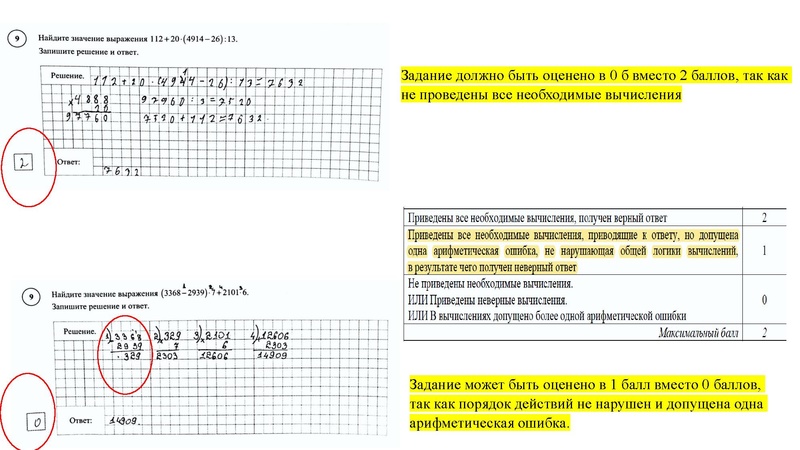 9
Найдите значение выражения 112+20·(4914−26):13.
Запишите решение и ответ.
Решение.
112+20·(4914−26):13=7632
×4888
20
97760
97960:3=7520
7520+112=7632.
2
Ответ:
7632
Задание должно быть оценено в 0 б вместо 2 баллов, так как
не проведены все необходимые вычисления
Приведены все необходимые вычисления, получен верный ответ
2
Приведены все необходимые вычисления, приводящие к ответу, но допущена
одна арифметическая ошибка, не нарушающая общей логики вычислений,
в результате чего получен неверный ответ
1
Не приведены необходимые вычисления.
ИЛИ Приведены неверные вычисления.
ИЛИ В вычислениях допущено более одной арифметической ошибки
0
Максимальный балл
2
9
Найдите значение выражения (3368−2939)·7+2101·6.
Запишите решение и ответ.
Решение.
1) 3368 2) 329 3) 2101 4) 12606
2939 7 6 2303
329 2303 12606 14909
0
Ответ:
14909.
Задание может быть оценено в 1 балл вместо 0 баллов,
так как порядок действий не нарушен и допущена одна
арифметическая ошибка.